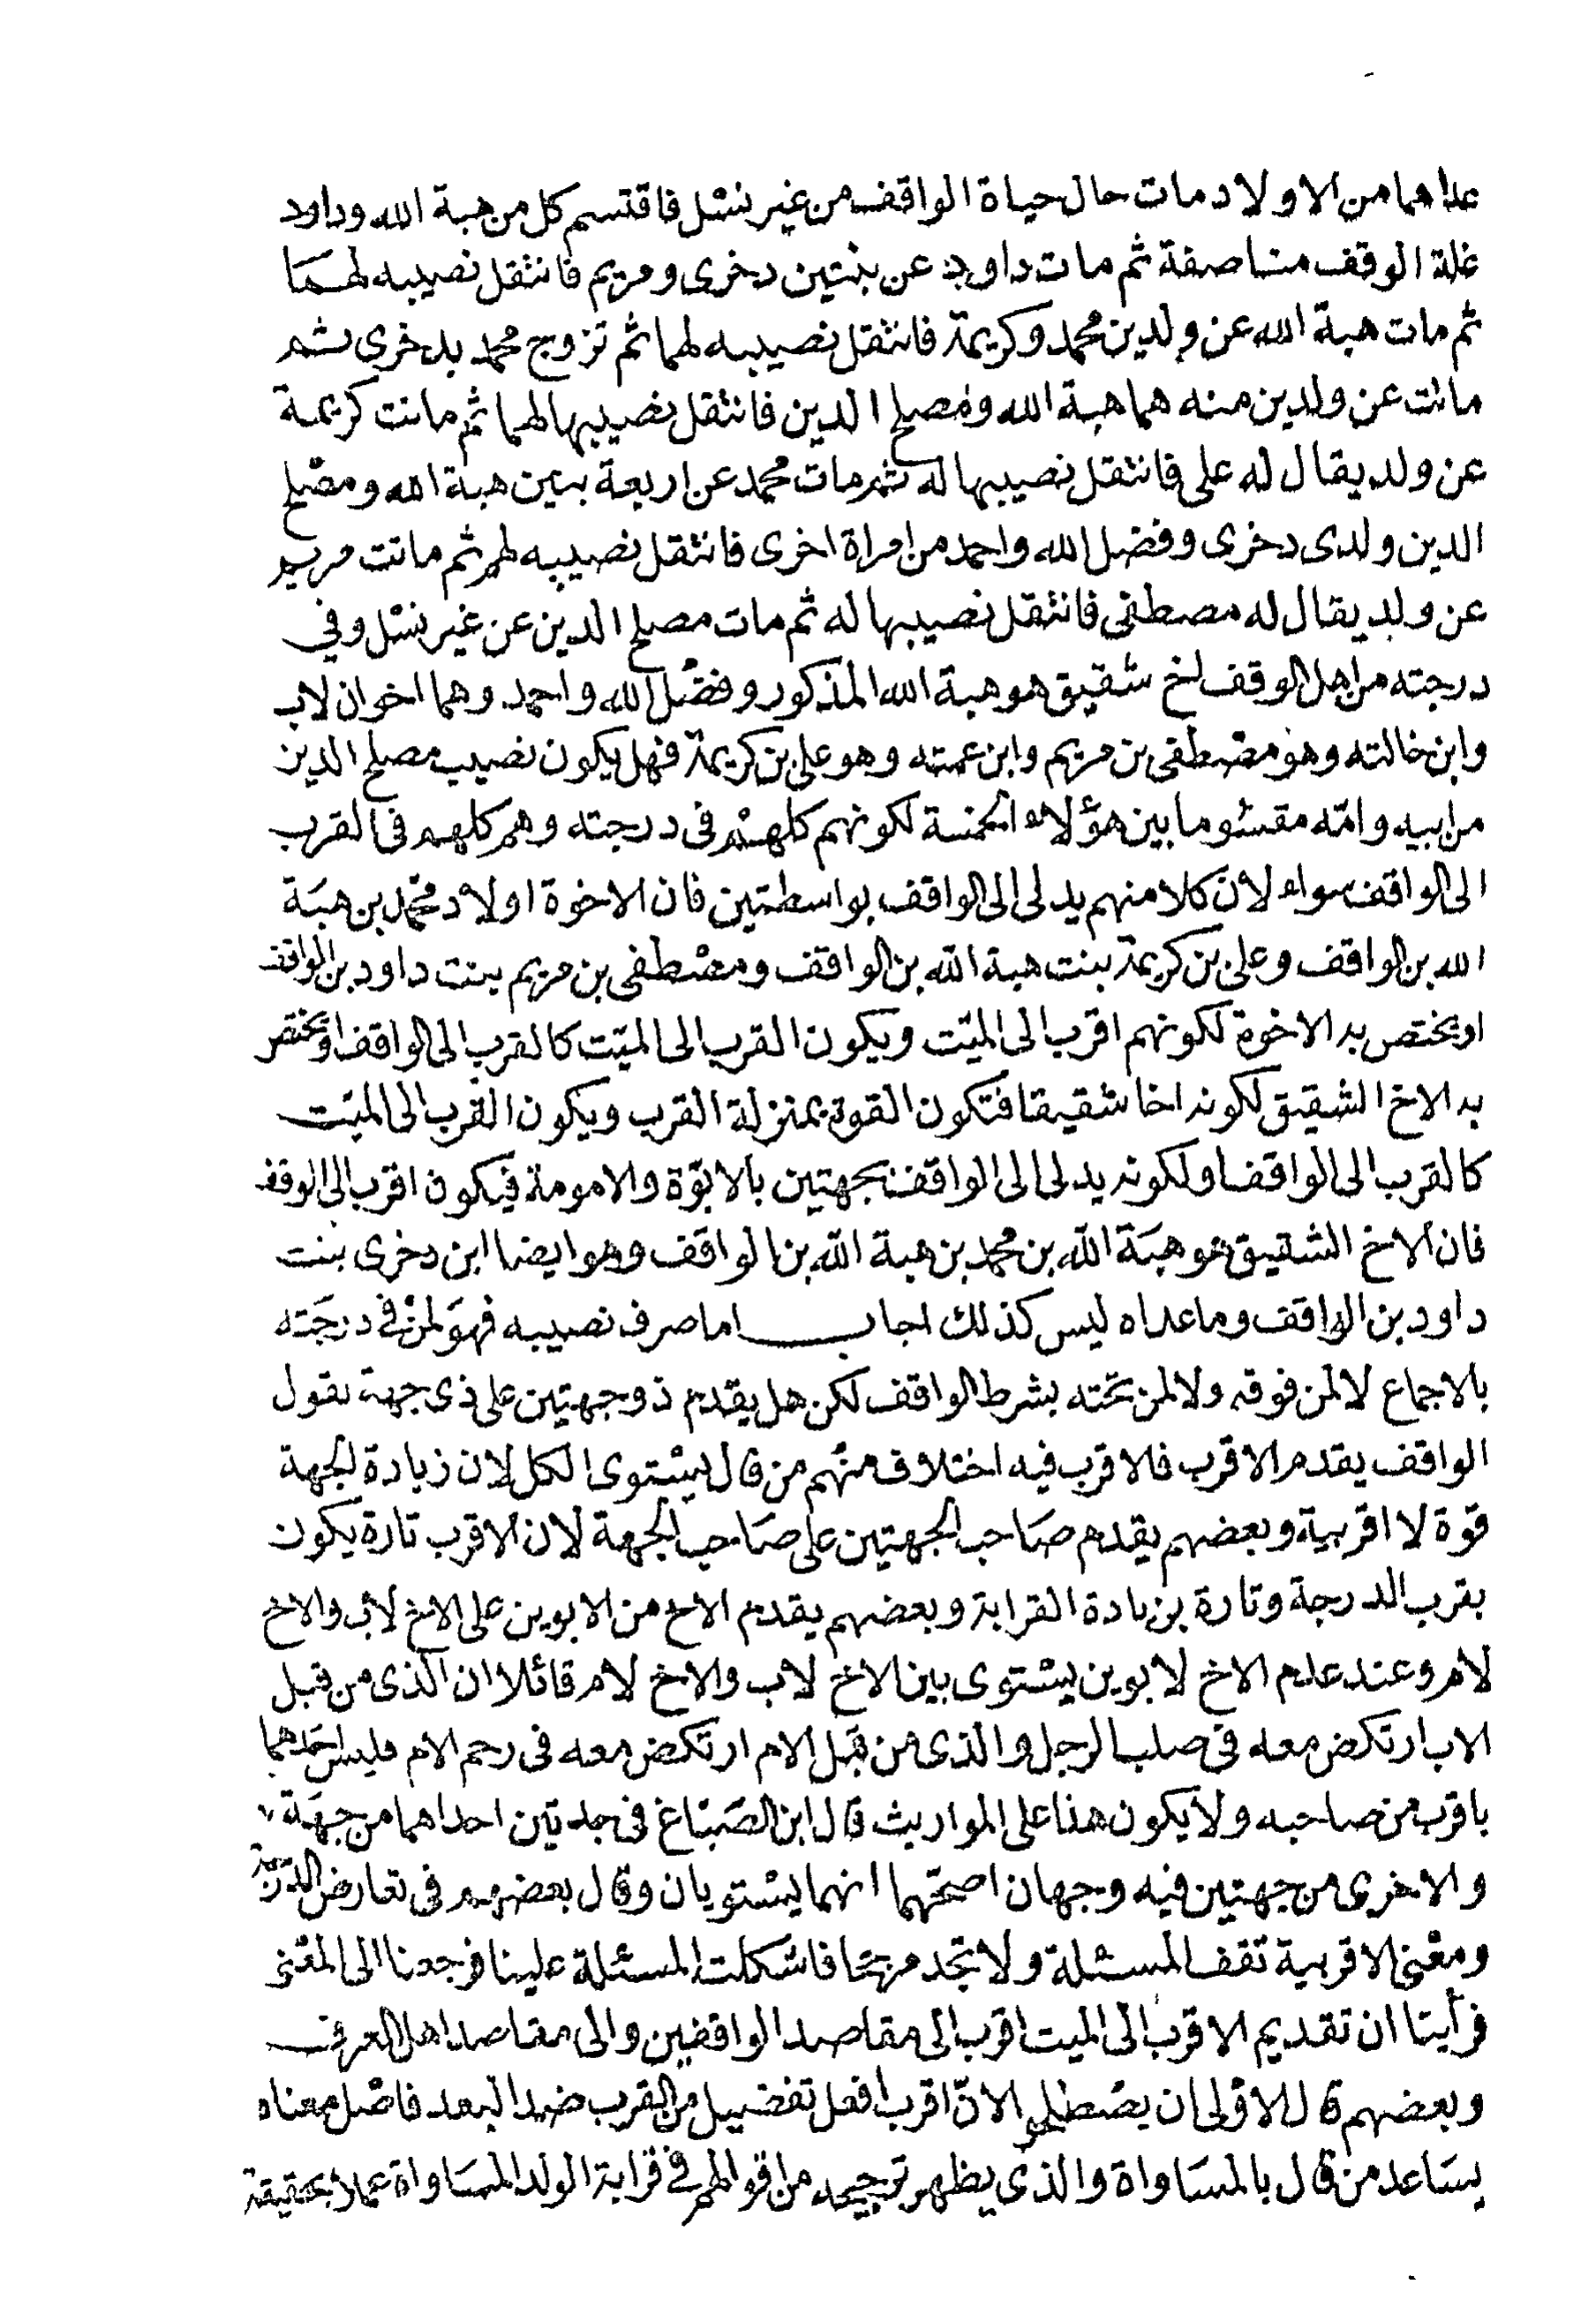 عداهما من الاولاد مات حال حياة الواقف من غير نسل فاقتسم كل من هبة الله وداود
غلة الوقف مناصفة ثم مات داود عن بنتين دخرى ومريم فانتقل نصيبه لهما
ثم مات هبة الله عن ولدين محمد وكريمة فانتقل نصيبه لهما ثم تزوج محمد بدخرى ثم
ماتت عن ولدين منه هما هبة الله ومصلح الدين فانتقل نصيبها لهما ثم ماتت كريمة
عن ولد يقال له على فانتقل نصيبها له ثم مات محمد عن اربعة بنين هبة الله ومصلح
الدين ولدى دخرى وفضل الله واحمد من امراة اخرى فانتقل نصيبه لهم ثم ماتت مريم
عن ولد يقال له مصطفى فانتقل نصيبها له ثم مات مصلح الدين عن غير نسل وفي
درجته من اهل الوقف اخ شقيق هو هبة الله المذكور وفضل الله واحمد وهما اخوان لاب
وابن خالته وهو مصطفى بن مريم وابن عمته وهو على بن كريمة فهل يكون نصيب مصلح الدين
من ابيه وامه مقسوما بين هؤلاء الخمسة لكونهم كلهم في درجته وهم كلهم في القرب
الى الواقف سواء لان كلا منهم يدلى الى الواقف بواسطتين فان الاخوة اولاد محمد بن هبة
الله بن الواقف وعلى بن كريمة بنت هبة الله بن الواقف ومصطفى بن مريم بنت داود بن الواقف
او يختص به الاخوة لكونهم اقرب الى الميت ويكون القرب الى الميت كالقرب الى الواقف او يختص
به الاخ الشقيق لكونه اخا شقيقا فتكون القوة بمنزلة القرب ويكون القرب الى الميت
كالقرب الى الواقف او لكونه يدلى الى الواقف بجهتين بالابوة والامومة فيكون اقرب الى الوقف
فان الاخ الشقيق هو هبة الله بن محمد بن هبة الله بن الواقف وهو ايضا ابن دخرى بنت
داود بن الواقف وما عداه ليس كذلك اجاب اما صرف نصيبه فهو لمن في درجته
بالاجماع لا لمن فوقه ولا لمن تحته بشرط الواقف لكن هل يقدم ذو جهتين على ذى جهة بقول
الواقف يقدم الاقرب فالاقرب فيه اختلاف منهم من قال يستوى الكل لان زيادة الجهة
قوة لا اقربية وبعضهم يقدم صاحب الجهتين على صاحب الجهة لان الاقرب تارة يكون
بقرب الدرجة وتارة بزيادة القرابة وبعضهم يقدم الاخ من الابوين على الاخ لاب والاخ
لام وعند علم الاخ لابوين يستوى بين الاخ لاب والاخ لام قائلا ان الذى من قبل
الاب ارتكض معه في صلب الرجل والذى من قبل الام ارتكض معه في رحم الام فليس احدهما
باقرب من صاحبه ولا يكون هذا على المواريث قال ابن الصباغ في جدتين احداهما من جهة
والاخرى من جهتين فيه وجهان اصحهما انهما يستويان وقال بعضهم في تعارض الدرجة
ومعنى الاقربية تقف المسئلة ولا تجد مرجحا فاشكلت المسئلة علينا فرجعنا الى المعنى
فرأينا ان تقديم الاقرب الى الميت اقرب الى مقاصد الواقفين والى مقاصد اهل العرف
وبعضهم قال الاولى ان يصطلحوا لان اقرب افعل تفضيل من القرب ضد البعد فاصل معناه
يساعد من قال بالمساواة والذى يظهر ترجيحه من اقوالهم في قرابة الولد المساواة عملا بحقيقة